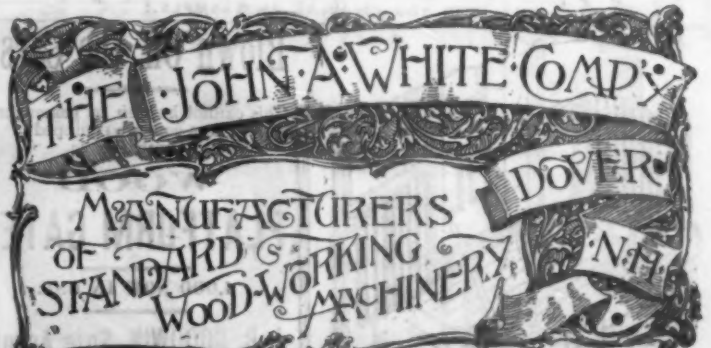 THE JOHN A. WHITE COMP'Y
DOVER
N.H.
MANUFACTURERS
OF STANDARD
WOOD-WORKING
MACHINERY.